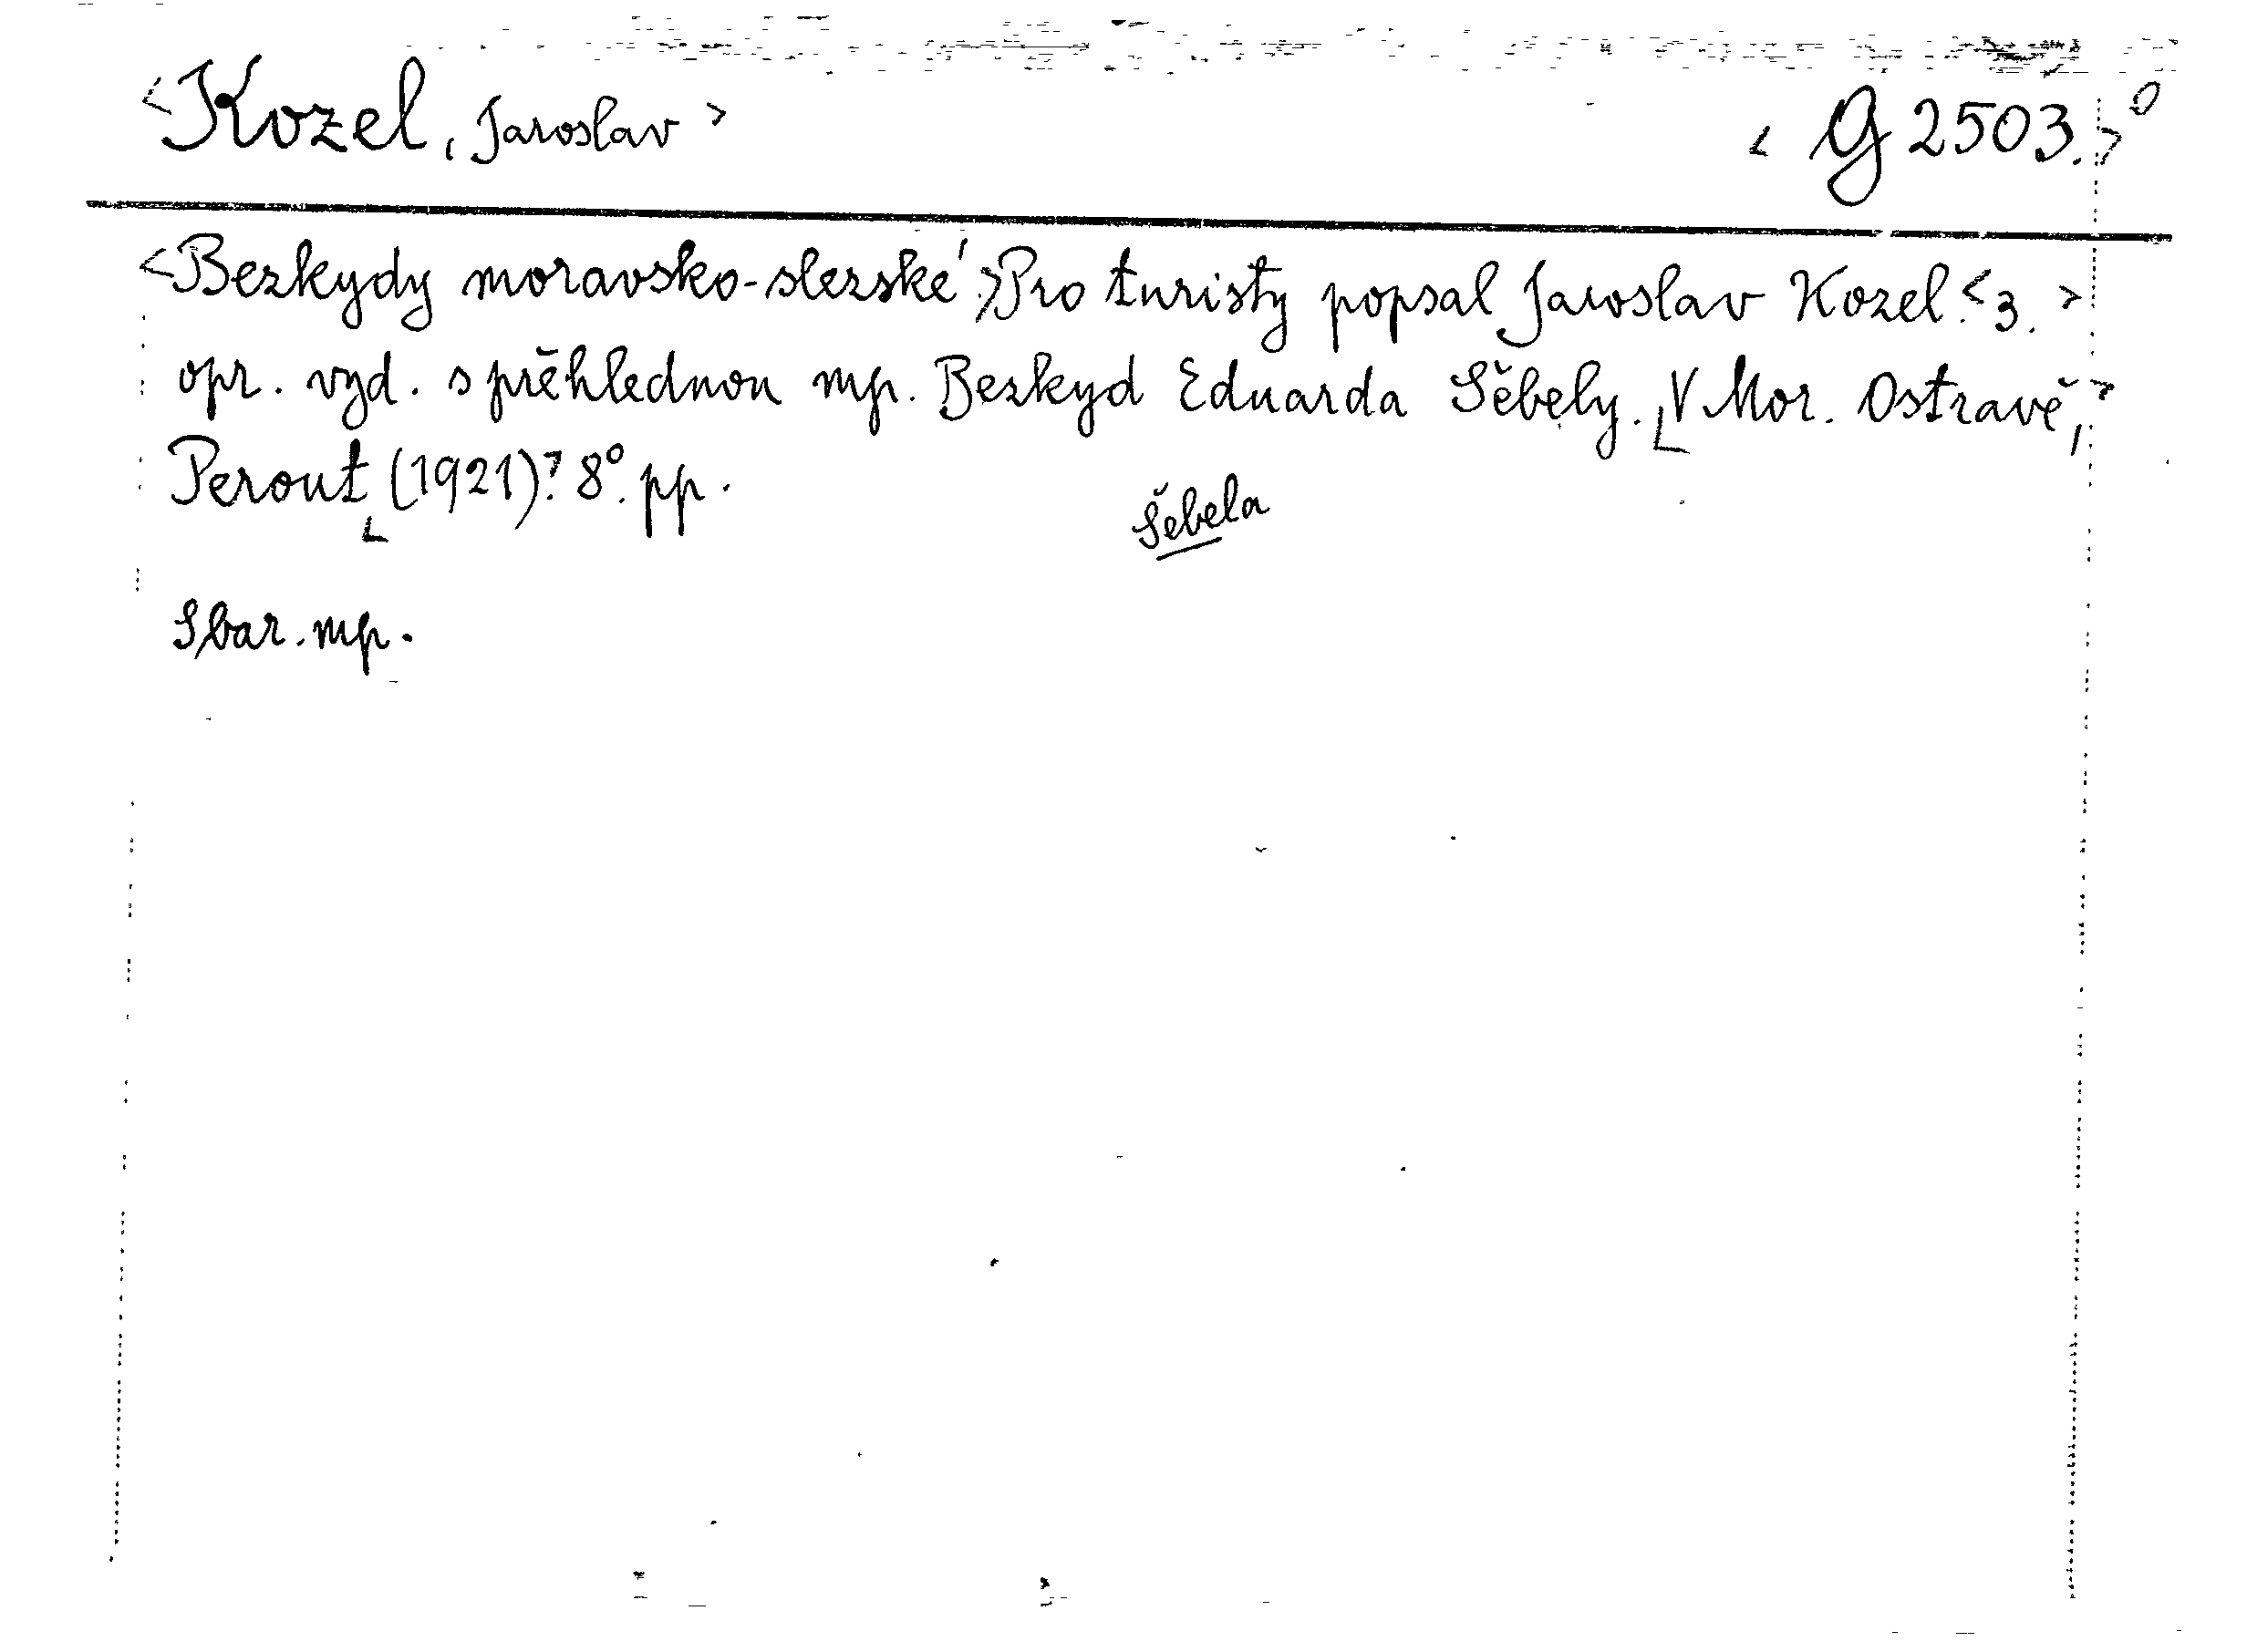 <Kozel, Jaroslav> <G 2503.>0
<Bezkydy moravsko-slezské.> Pro turisty popsal Jaroslav Kozel. <3.>
opr. vyd. s přěhlednou mp. Bezkyd Eduarda Šěbely. <V Mor. Ostravě,>
Perout <(1921)>. 8°. pp.
Šebela
5 bar. mp.